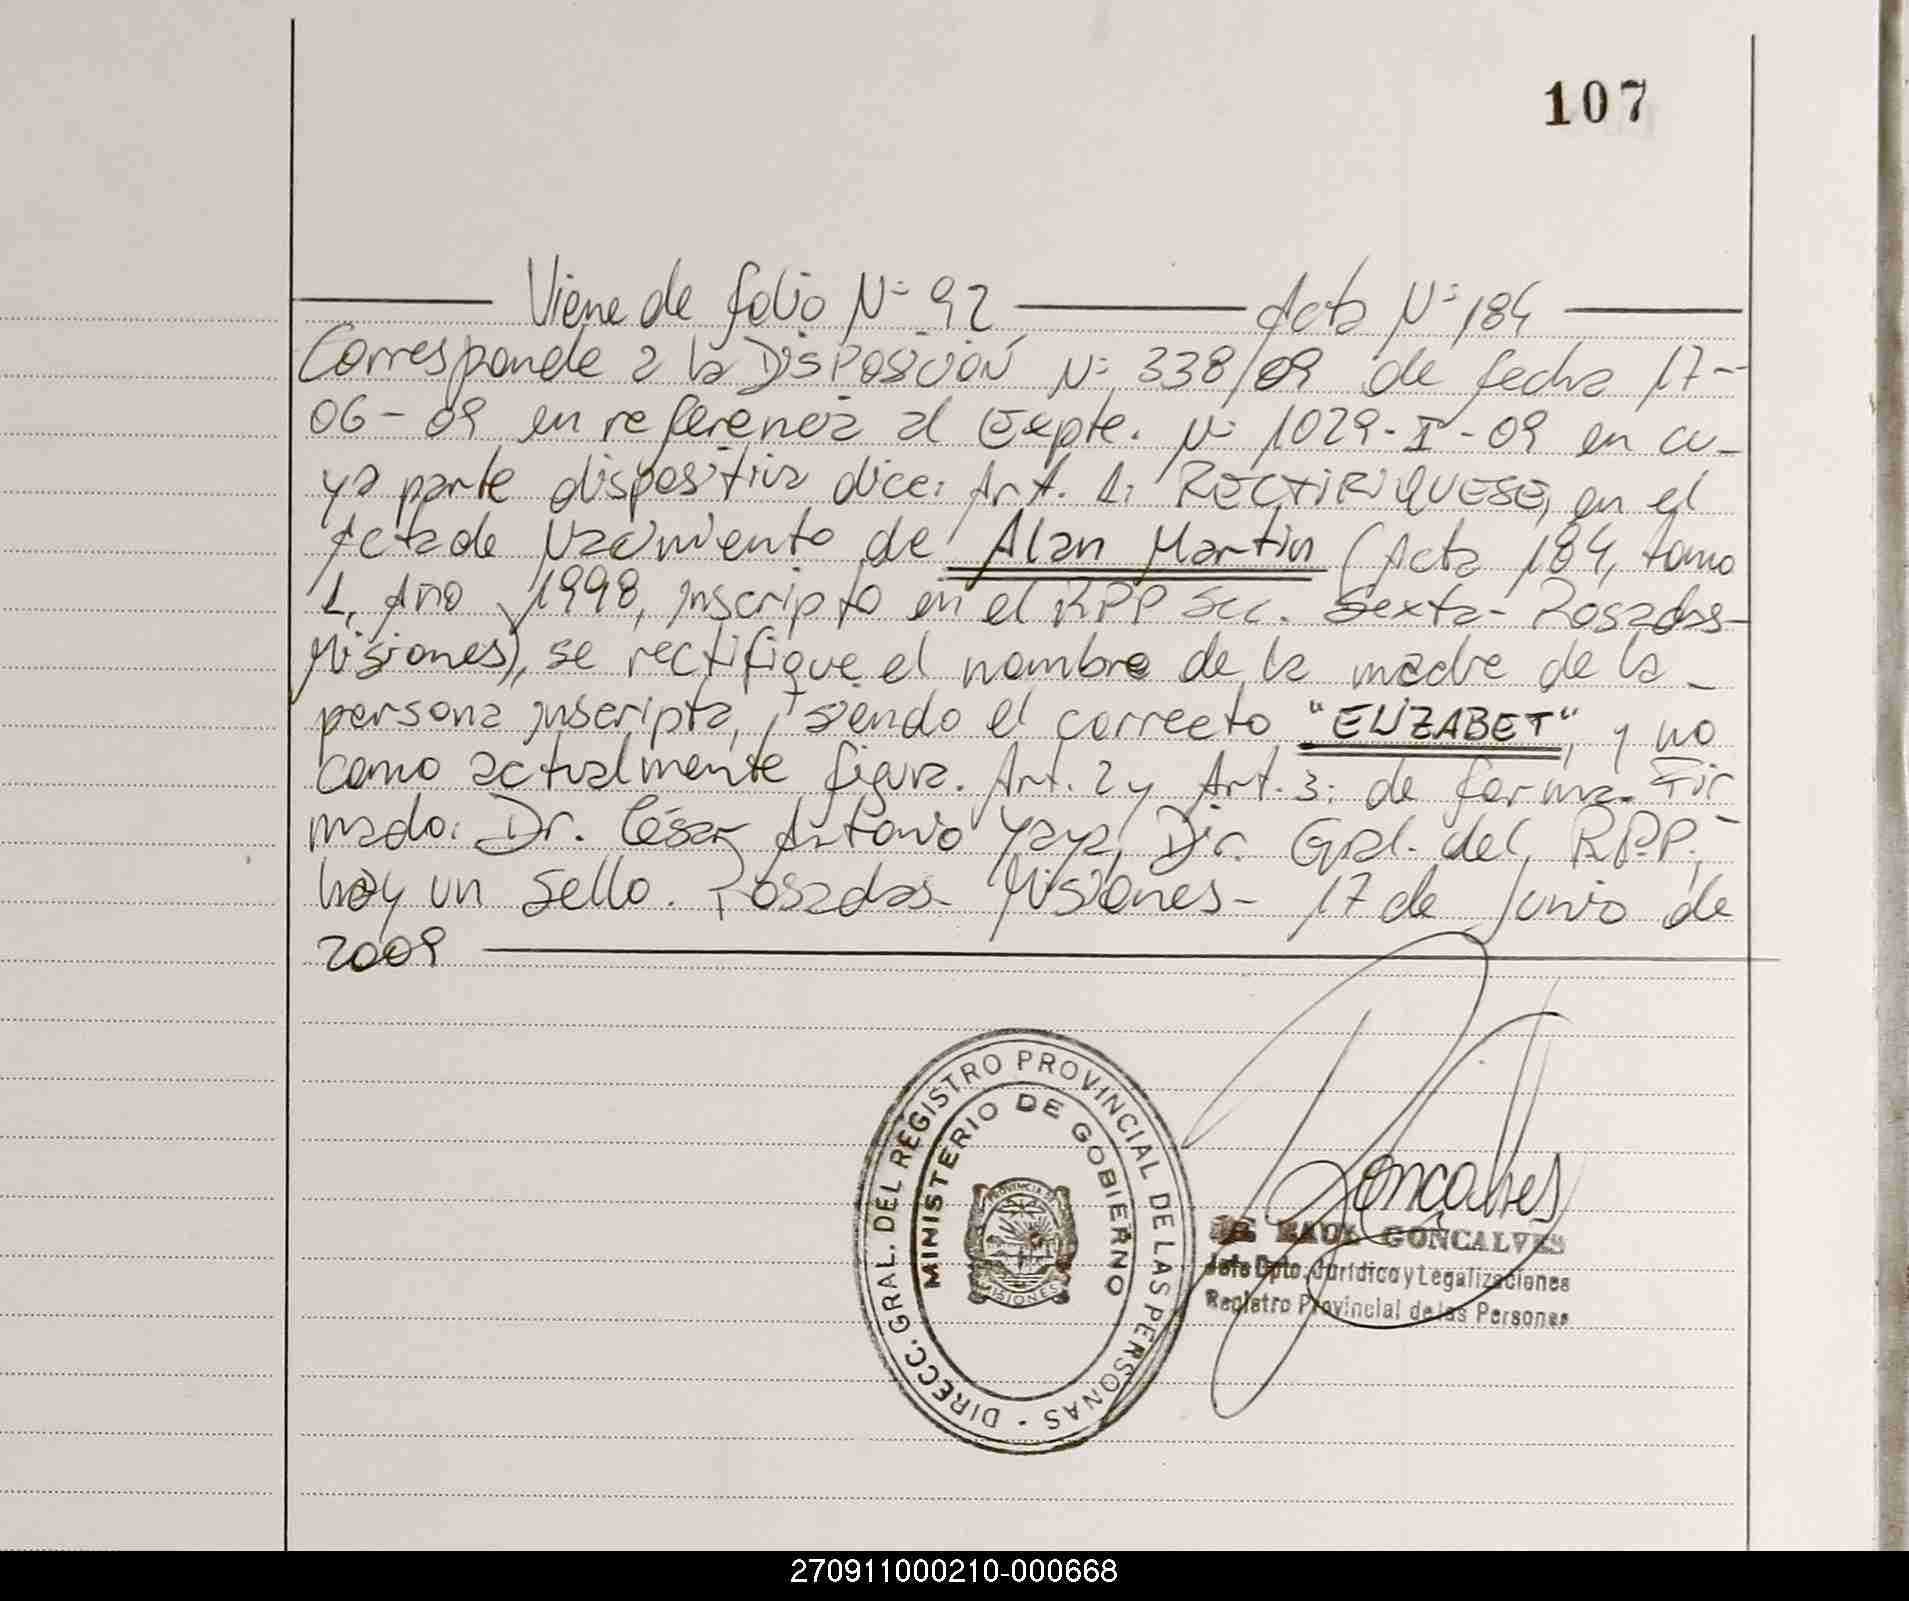 107
Viene de folio Nº 92 Acta Nº 184
Corresponde a la DISPOSICIÓN Nº 338/09 de fecha 17-
06-09 en referencia al Expte. Nº 1029-I-09 en cu-
ya parte dispositiva dice: Art. 1: RECTIFIQUESE, en el
Acta de Nacimiento de Alan Martin (Acta 184, tomo
1, Año 1998, inscripto en el RPP Sec. Sexta- Posadas-
Misiones), se rectifique el nombre de la madre de la
persona inscripta, siendo el correcto "ELIZABET", y no
como actualmente figura. Art. 2 y Art. 3: de forma. Fir-
mado: Dr. César Antonio Yaya, Dir. Gral. del R.P.P.,
hay un sello. Posadas- Misiones- 17 de Junio de
2009
DIRECC. GRAL. DEL REGISTRO PROVINCIAL DE LAS PERSONAS
MINISTERIO DE GOBIERNO
PROVINCIA DE
MISIONES
Goncalves
RAUL GONCALVES
Jefe Dpto. Jurídico y Legalizaciones
Registro Provincial de las Personas
270911000210-000668